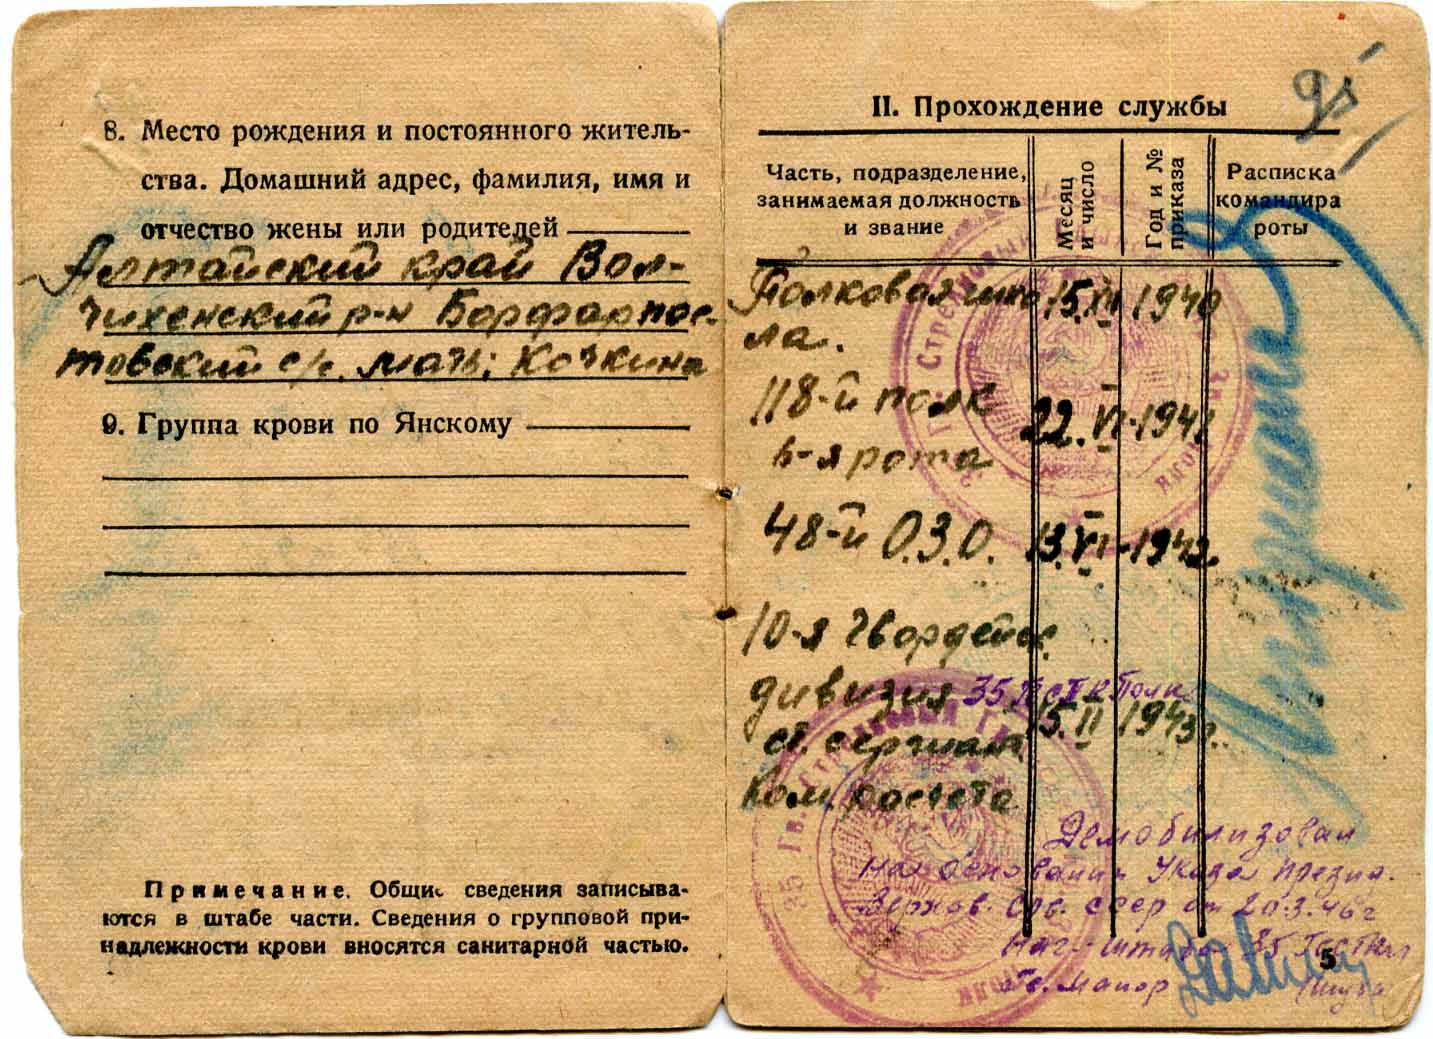 8. Место рождения и постоянного житель-
ства. Домашний адрес, фамилия, имя и
отчество жены или родителей
Алтайский край Вол-
чихенский р-н Борфарпос-
товский с/с. мать: Кочкина
9. Группа крови по Янскому
Примечание. Общие сведения записыва-
ются в штабе части. Сведения о групповой при-
надлежности крови вносятся санитарной частью.
II. Прохождение службы
Часть, подразделение,
занимаемая должность
и звание
Месяц
и число
Год и №
приказа
Расписка
командира
роты
Полковая шко 15. 1940
ла.
118-й полк
22. VI-1941
6-я рота
48-й О.З.О. 13.VI-1942г.
10-я гвардейс.
дивизия 35 полк
15.II 1943г.
ст. сержант
Ком. расчета
Демобилизован
На основании Указа Презид.
Верхов. Сов. СССР от 20.3.46г
Нач. штаба 35
Гв. Майор
5